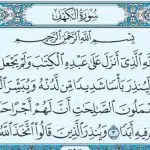 سُورَةُ الكَهْفِ
بِسْمِ اللَّهِ الرَّحْمَٰنِ الرَّحِيمِ
لِلَّهِ الَّذِي أَنزَلَ عَلَىٰ عَبْدِهِ الْكِتَٰبَ وَلَمْ يَجْعَل
لِّيُنذِرَ بَأْسًا شَدِيدًا مِّن لَّدُنْهُ وَيُبَشِّرَ
يَعْمَلُونَ الصَّٰلِحَٰتِ أَنَّ لَهُمْ أَجْرًا
فِيهِ أَبَدًا ٣ وَيُنذِرَ الَّذِينَ قَالُوا اتَّخَذَ اللَّهُ